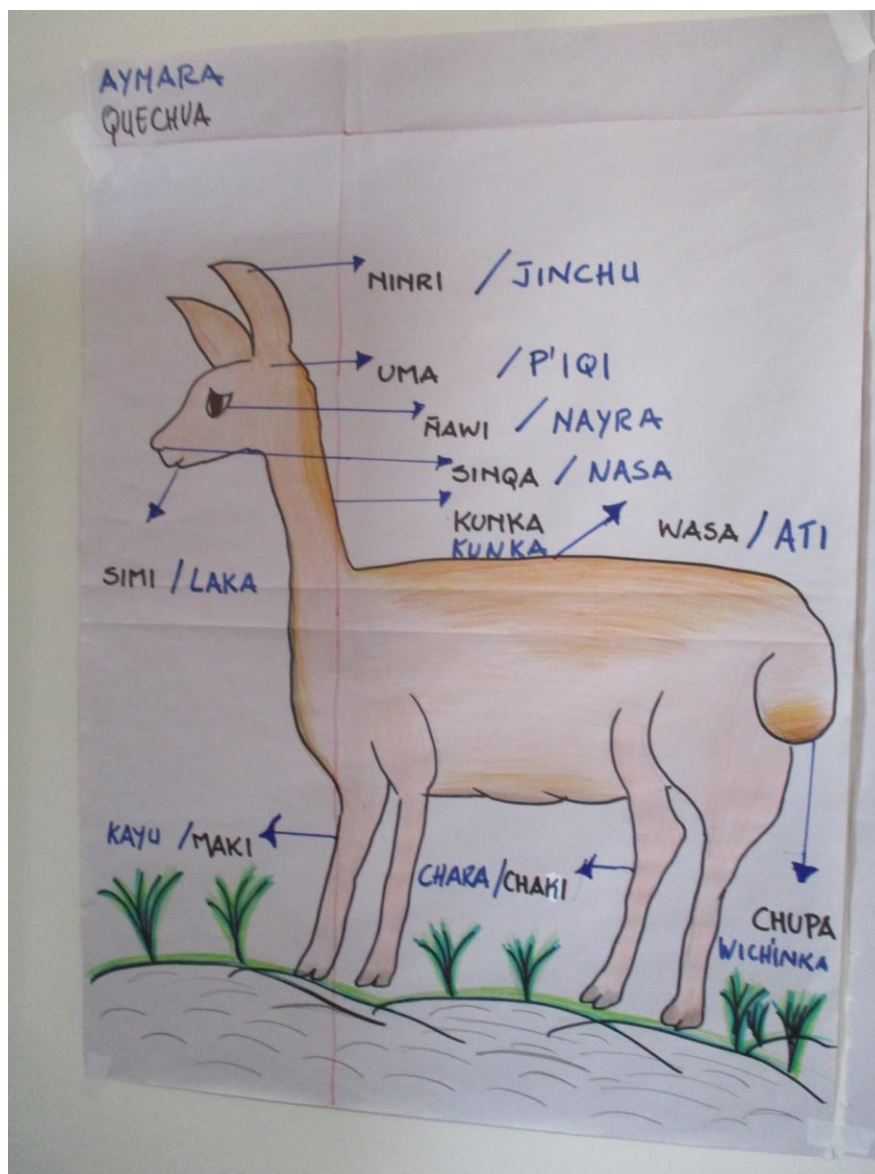 AYMARA
QUECHUA
NINRI / JINCHU
UMA / P'IQI
ÑAWI / NAYRA
SINQA / NASA
KUNKA
KUNKA
WASA / ATI
SIMI / LAKA
KAYU / MAKI
CHARA / CHAKI
CHUPA
WICHINKA